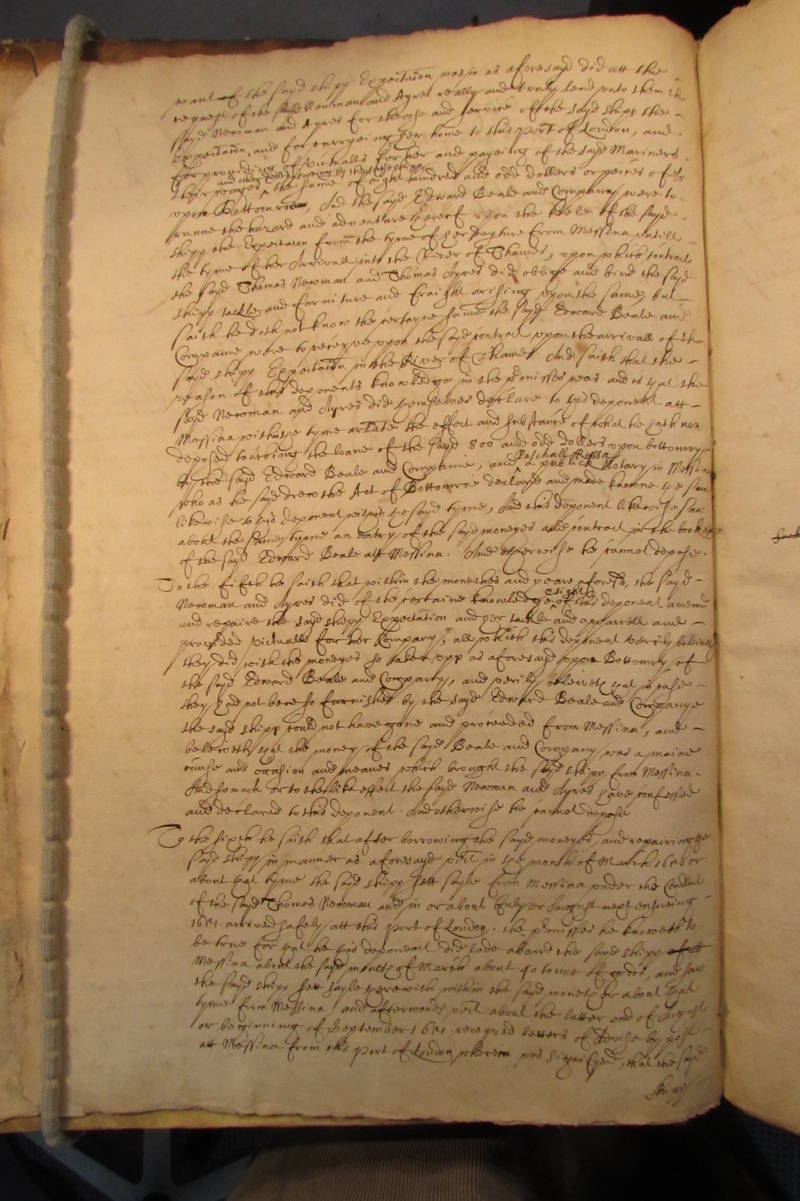 want of the sayd shipp Expectation, was in as aforesayd did att the
request of the sayd Newman and Ayres really and truly lend unto them the
sayd Newman and Ayres for the use and service of the sayd shipp the
Expectation, and for carryeing her home to this Port of London, and
for provideing of victualls for her and payeing of the sayd Mariners
their wages the summe of eight hundred and odd dollers or peices of 8/8
upon Bottomrie, And the sayd Edward Beale and Company were to
runne the hazard and adventure thereof upon the keele of the sayd
shipp the Expectaton from the tyme of her depture from Messina untill
the tyme of her Arrivall into the River of Thames, upon which contract
the sayd Thomas Newman and Thomas Ayres did oblige and bind the sayd
shipp tackle and furniture and fraight arising upon the same, but
saith he doth not know the certayne summe the sayd Edward Beale and
Companie were to receyve upon the sayd contract upon the arrivall of the
sayd shipp Expectation in the River of Thames. And saith that the
reason of this deponents knowledge in the premisses was and is that the
sayd Newman and Ayres did themselves declare to this deponent att
Messina within the tyme arlate the effect and substance of what he hath now
deposed touching the loane of the sayd 800 and odd dollers upon bottomry
by the sayd Edward Beale and Companie, and Paschall Russo a publick Notary in Messina
who as he sayd drew the Act of Bottomree declared and made knowne the same
likewise to this deponent within the sayd tyme, And this deponent likewise saw
about the same tyme an entry of the sayd moneyes and contract in the booke
of the sayd Edward Beale att Messina. And otherwise he cannot depose.
To the fifth he saith that within the monethes and yeare aforesd, the sayd
Newman and Ayres did of the certaine knowledge & sight of this deponent amend
and repaire the sayd shipp Expectation and her tackle and apparrell and
provided victualls for her Company, all which this deponent verily beleiveth
they did with the moneyes so taken upp as aforesayd upon Bottomry of
the sayd Edward Beale and Company, and verily beleiveth that in case
they had not bene so furnished by the sayd Edward Beale and Companye
the sayd shipp could not have gone and proceeded from Messina, and
beleiveth that the money of the sayd Beale and Company was a maine
cause and occasion and meanes which brought the sayd shipp from Messina.
And so much or to the like effect the sayd Newman and Ayres have confessed
and declared to this deponent. And otherwise he cannot depose
To the sixth he saith that after borrowing the sayd moneyes, and repairing the
sayd shipp in manner as aforesayd vizt in the month of March 1650 or
about that tyme the sayd shipp sett sayle from Messina under the Conduct
of the sayd Thomas Newman and in or about July or August next ensueing
1651 arrived safely att this port of London. the premisses he knoweth to
be true for that he this deponent did lade aboard the sayd shipp att
Messina about the sayd month of March about 40 tonns of goods, and saw
the sayd shipp sett sayle therewith within the sayd moneth or about that
tyme from Messina and afterwards vizt about the latter end of August
or beginning of September 1651 receyved letters of advise by post
att Messina from this port of London wherein was signifyed, that the sayd
shipp